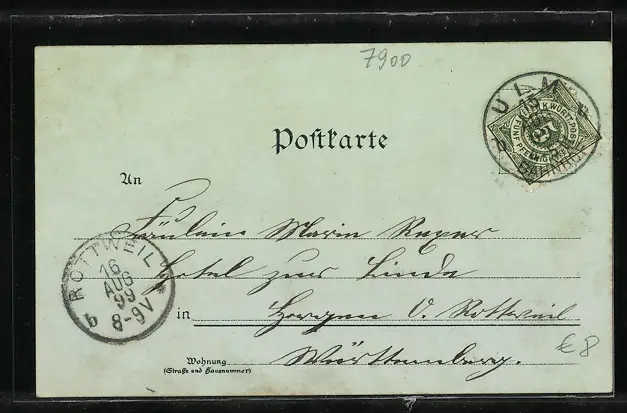 7900
ULM
K. WÜRTT. POST
FÜNF
5
PFENNIG
BAHNHOF
Postkarte
An
Fräulein Marie
Hotel zur Linde
ROTTWEIL
16
AUG
99
8-9V
b
in
Horgen O. Rottweil
Württemberg.
Wohnung
(Straße und Hausnummer)
€ 8